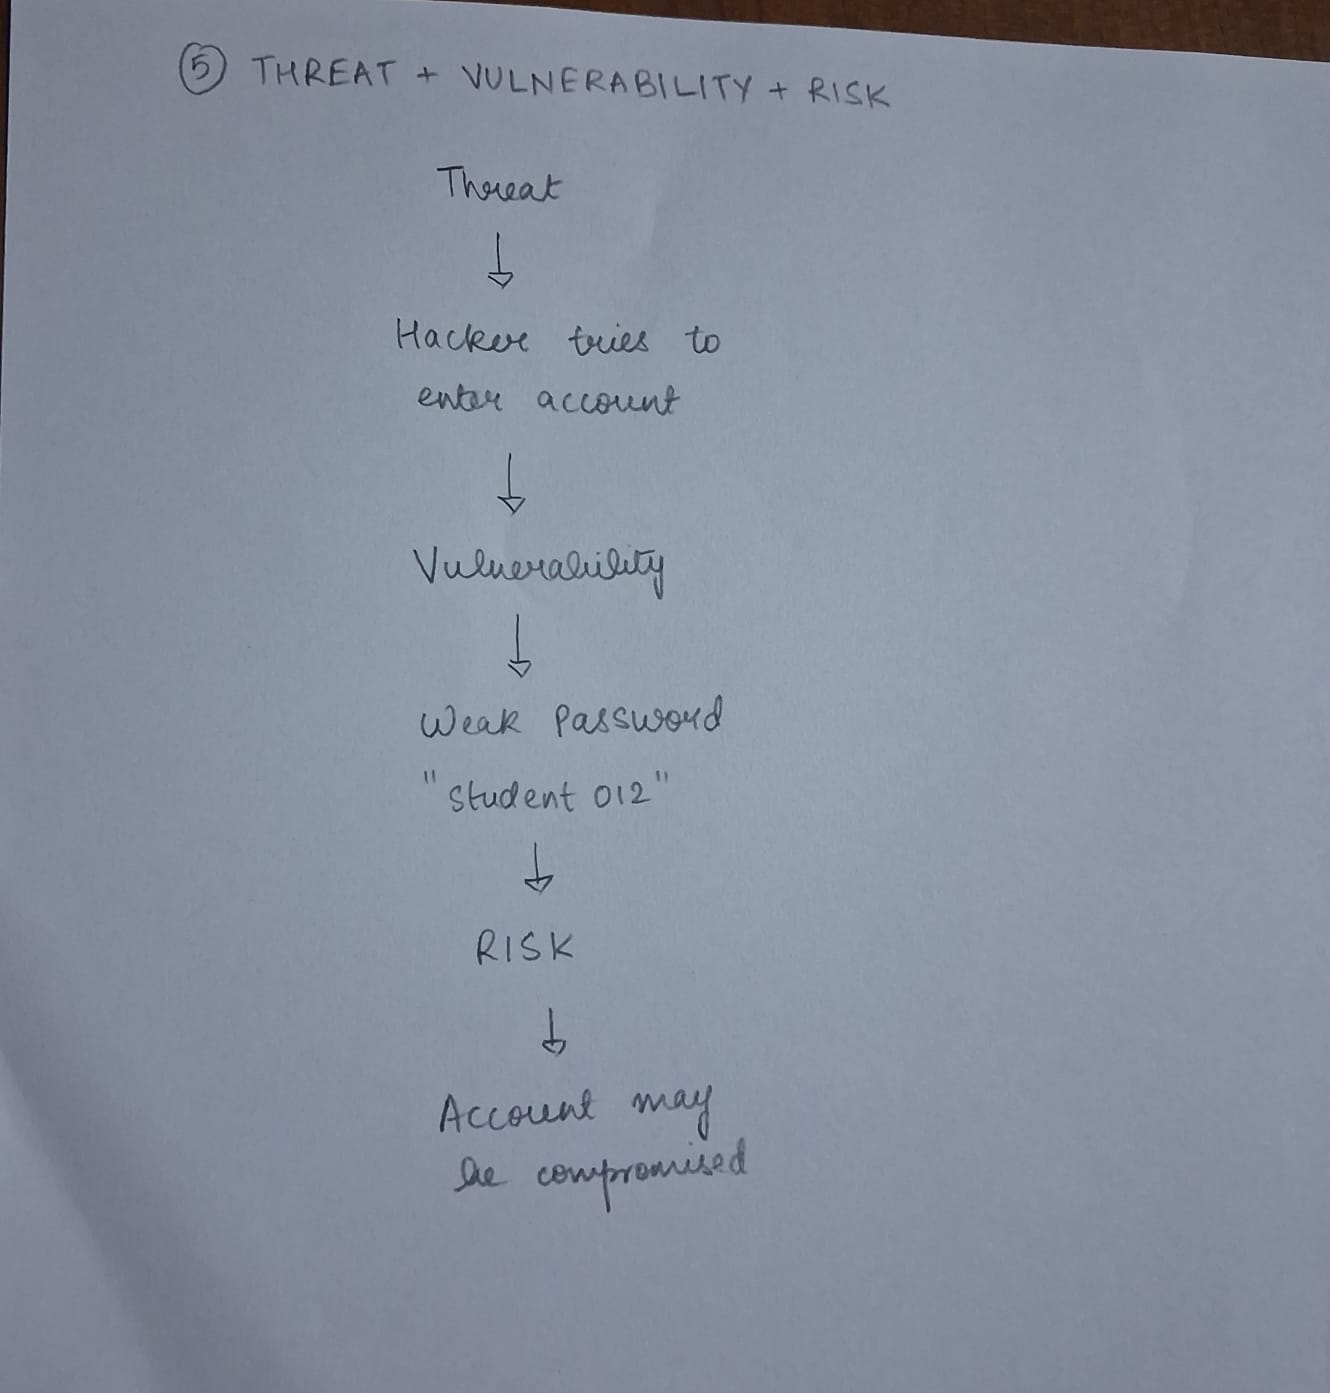 5 THREAT + VULNERABILITY + RISK
Threat
↓
Hacker tries to
enter account
↓
Vulnerability
↓
Weak Password
"student 012"
↓
RISK
↓
Account may
be compromised